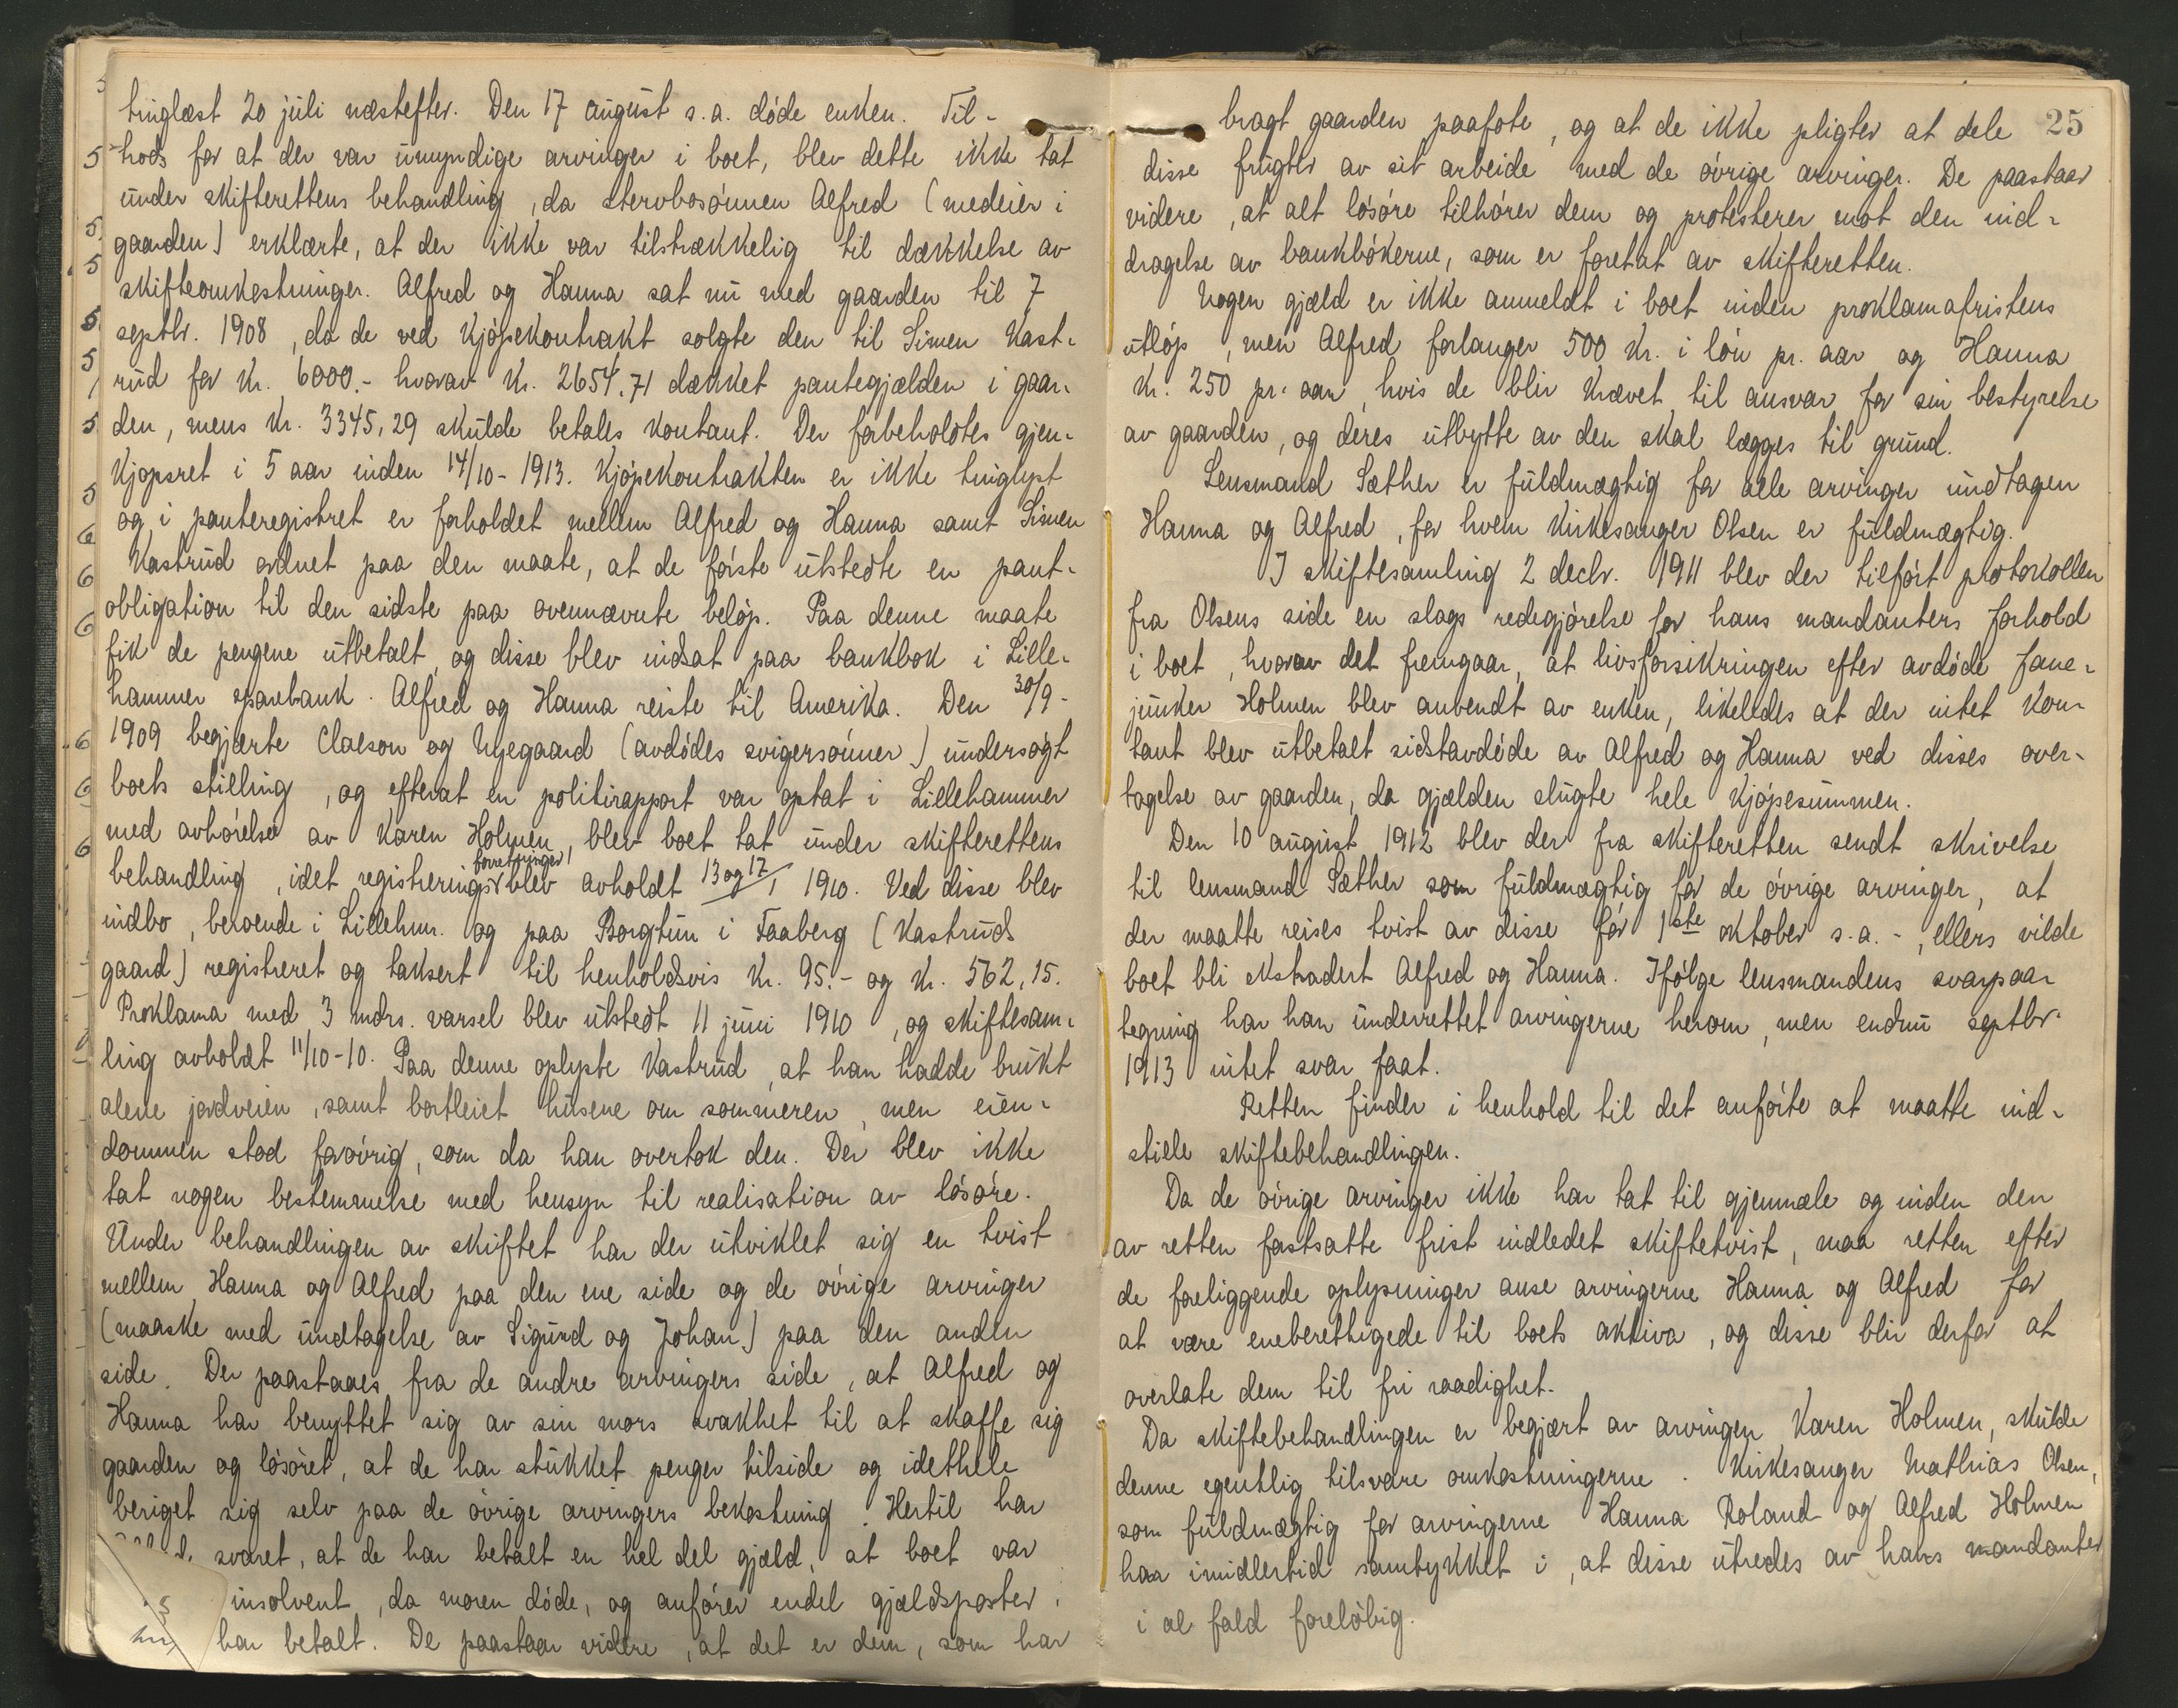 tinglæst 20 juli næstefter. Den 17 august s.a. döde enken. Til-
hods for at der var umyndige arvinger i boet, blev dette ikke tat
under skifterettens behandling, da stervbosönnen Alfred (medeier i
gaarden) erklærte, at der ikke var tilstrækkelig til dækkelse av
skifteomkostninger. Alfred og Hanna sat nu med gaarden til 7
septbr. 1908, da de ved kjöpekontrakt solgte den til Simen Kast-
rud for kr. 6000.- hvorav kr. 2654.71 dækket pantegjælden i gaar-
den, mens kr. 3345,29 skulde betales kontant. Der forbeholdtes gjen-
kjöpsret i 5 aar inden 14/10-1913. Kjöpekontrakten er ikke tinglyst
og i panteregistret er forholdet mellem Alfred og Hanna samt Simen
Kastrud ordnet paa den maate, at de förste utstedte en pant-
obligation til den sidste paa ovennævnte belöp. Paa denne maate
fik de pengene utbetalt, og disse blev indsat paa bankbok i Lille-
hammer sparebank. Alfred og Hanna reiste til Amerika. Den 30/9-
1909 begjærte Claeson og Nyegaard (avdödes svigersönner) undersögt
boets stilling, og efterat en politirapport var optat i Lillehammer
med avhörelse av Karen Holmen, blev boet tat under skifterettens
behandling, idet registrerings forretninger blev avholdt 13 og 17/1 1910. Ved disse blev
indbo, beroende i Lillehmr. og paa Borgtun i Faaberg (Kastruds
gaard) registreret og taksert til henholdsvis kr. 95.- og kr. 562,15.
Proklama med 3 mdrs. varsel blev utstedt 11 juni 1910, og skiftesam-
ling avholdt 11/10-10. Paa denne oplyste Kastrud, at han hadde brukt
alene jordveien, samt bortleiet husene om sommeren, men eien-
dommen stod forövrig, som da han overtok den. Der blev ikke
tat nogen bestemmelse med hensyn til realisation av lösöre.
Under behandlingen av skiftet har der utviklet sig en tvist
mellem Hanna og Alfred paa den ene side og de övrige arvinger
(maaske med undtagelse av Sigurd og Johan) paa den anden
side. Der paastaaes fra de andre arvingers side, at Alfred og
Hanna har benyttet sig av sin mors svakhet til at skaffe sig
gaarden og lösöret, at de har stukket penger tilside og idethele
beriget sig selv paa de övrige arvingers bekostning. Hertil har
svaret, at de har betalt en hel del gjæld, at boet var
insolvent, da moren döde, og anförer endel gjældsposter,
har betalt. De paastaar videre, at det er dem, som har
25
bragt gaarden paafote, og at de ikke pligter at dele
disse frugter av sit arbeide med de övrige arvinger. De paastaar
videre, at alt lösöre tilhörer dem og protesterer mot den ind-
dragelse av bankbökerne, som er foretat av skifteretten.
Nogen gjæld er ikke anmeldt i boet inden proklamafristens
utlöp, men Alfred forlanger 500 kr. i lön pr. aar og Hanna
kr. 250 pr. aar, hvis de blir krævet til ansvar for sin bestyrelse
av gaarden, og deres utbytte av den skal lægges til grund.
Lensmand Sæther er fuldmægtig for alle arvinger undtagen
Hanna og Alfred, for hvem kirkesanger Olsen er fuldmægtig.
I skiftesamling 2 decbr. 1911 blev der tilfört protokollen
fra Olsens side en slags redegjörelse for hans mandanters forhold
i boet, hvorav det fremgaar, at livsforsikringen efter avdöde fane-
junker Holmen blev anvendt av enken, likeledes at der intet kon-
tant blev utbetalt sidstavdöde av Alfred og Hanna ved disses over-
tagelse av gaarden, da gjælden slugte hele kjöpesummen.
Den 10 august 1912 blev der fra skifteretten sendt skrivelse
til lensmand Sæther som fuldmægtig for de övrige arvinger, at
der maatte reises tvist av disse för 1ste oktober s.a.-, ellers vilde
boet bli ekstradert Alfred og Hanna. Ifölge lensmandens svarpaa-
tegning har han underrettet arvingerne herom, men endnu septbr.
1913 intet svar faat.
Retten finder i henhold til det anförte at maatte ind-
stille skiftebehandlingen.
Da de övrige arvinger ikke har tat til gjenmæle og inden den
av retten fastsatte frist indledet skiftetvist, maa retten efter
de foreliggende oplysninger anse arvingerne Hanna og Alfred for
at være eneberettigede til boets aktiva, og disse blir derfor at
overlate dem til fri raadighet.
Da skiftebehandlingen er begjært av arvingen Karen Holmen, skulde
denne egentlig tilsvare omkostningerne. Kirkesanger Mathias Olsen,
som fuldmægtig for arvingerne Hanna Roland og Alfred Holmen
har imidlertid samtykket i, at disse utredes av hans mandanter
i al fald forelöbig.